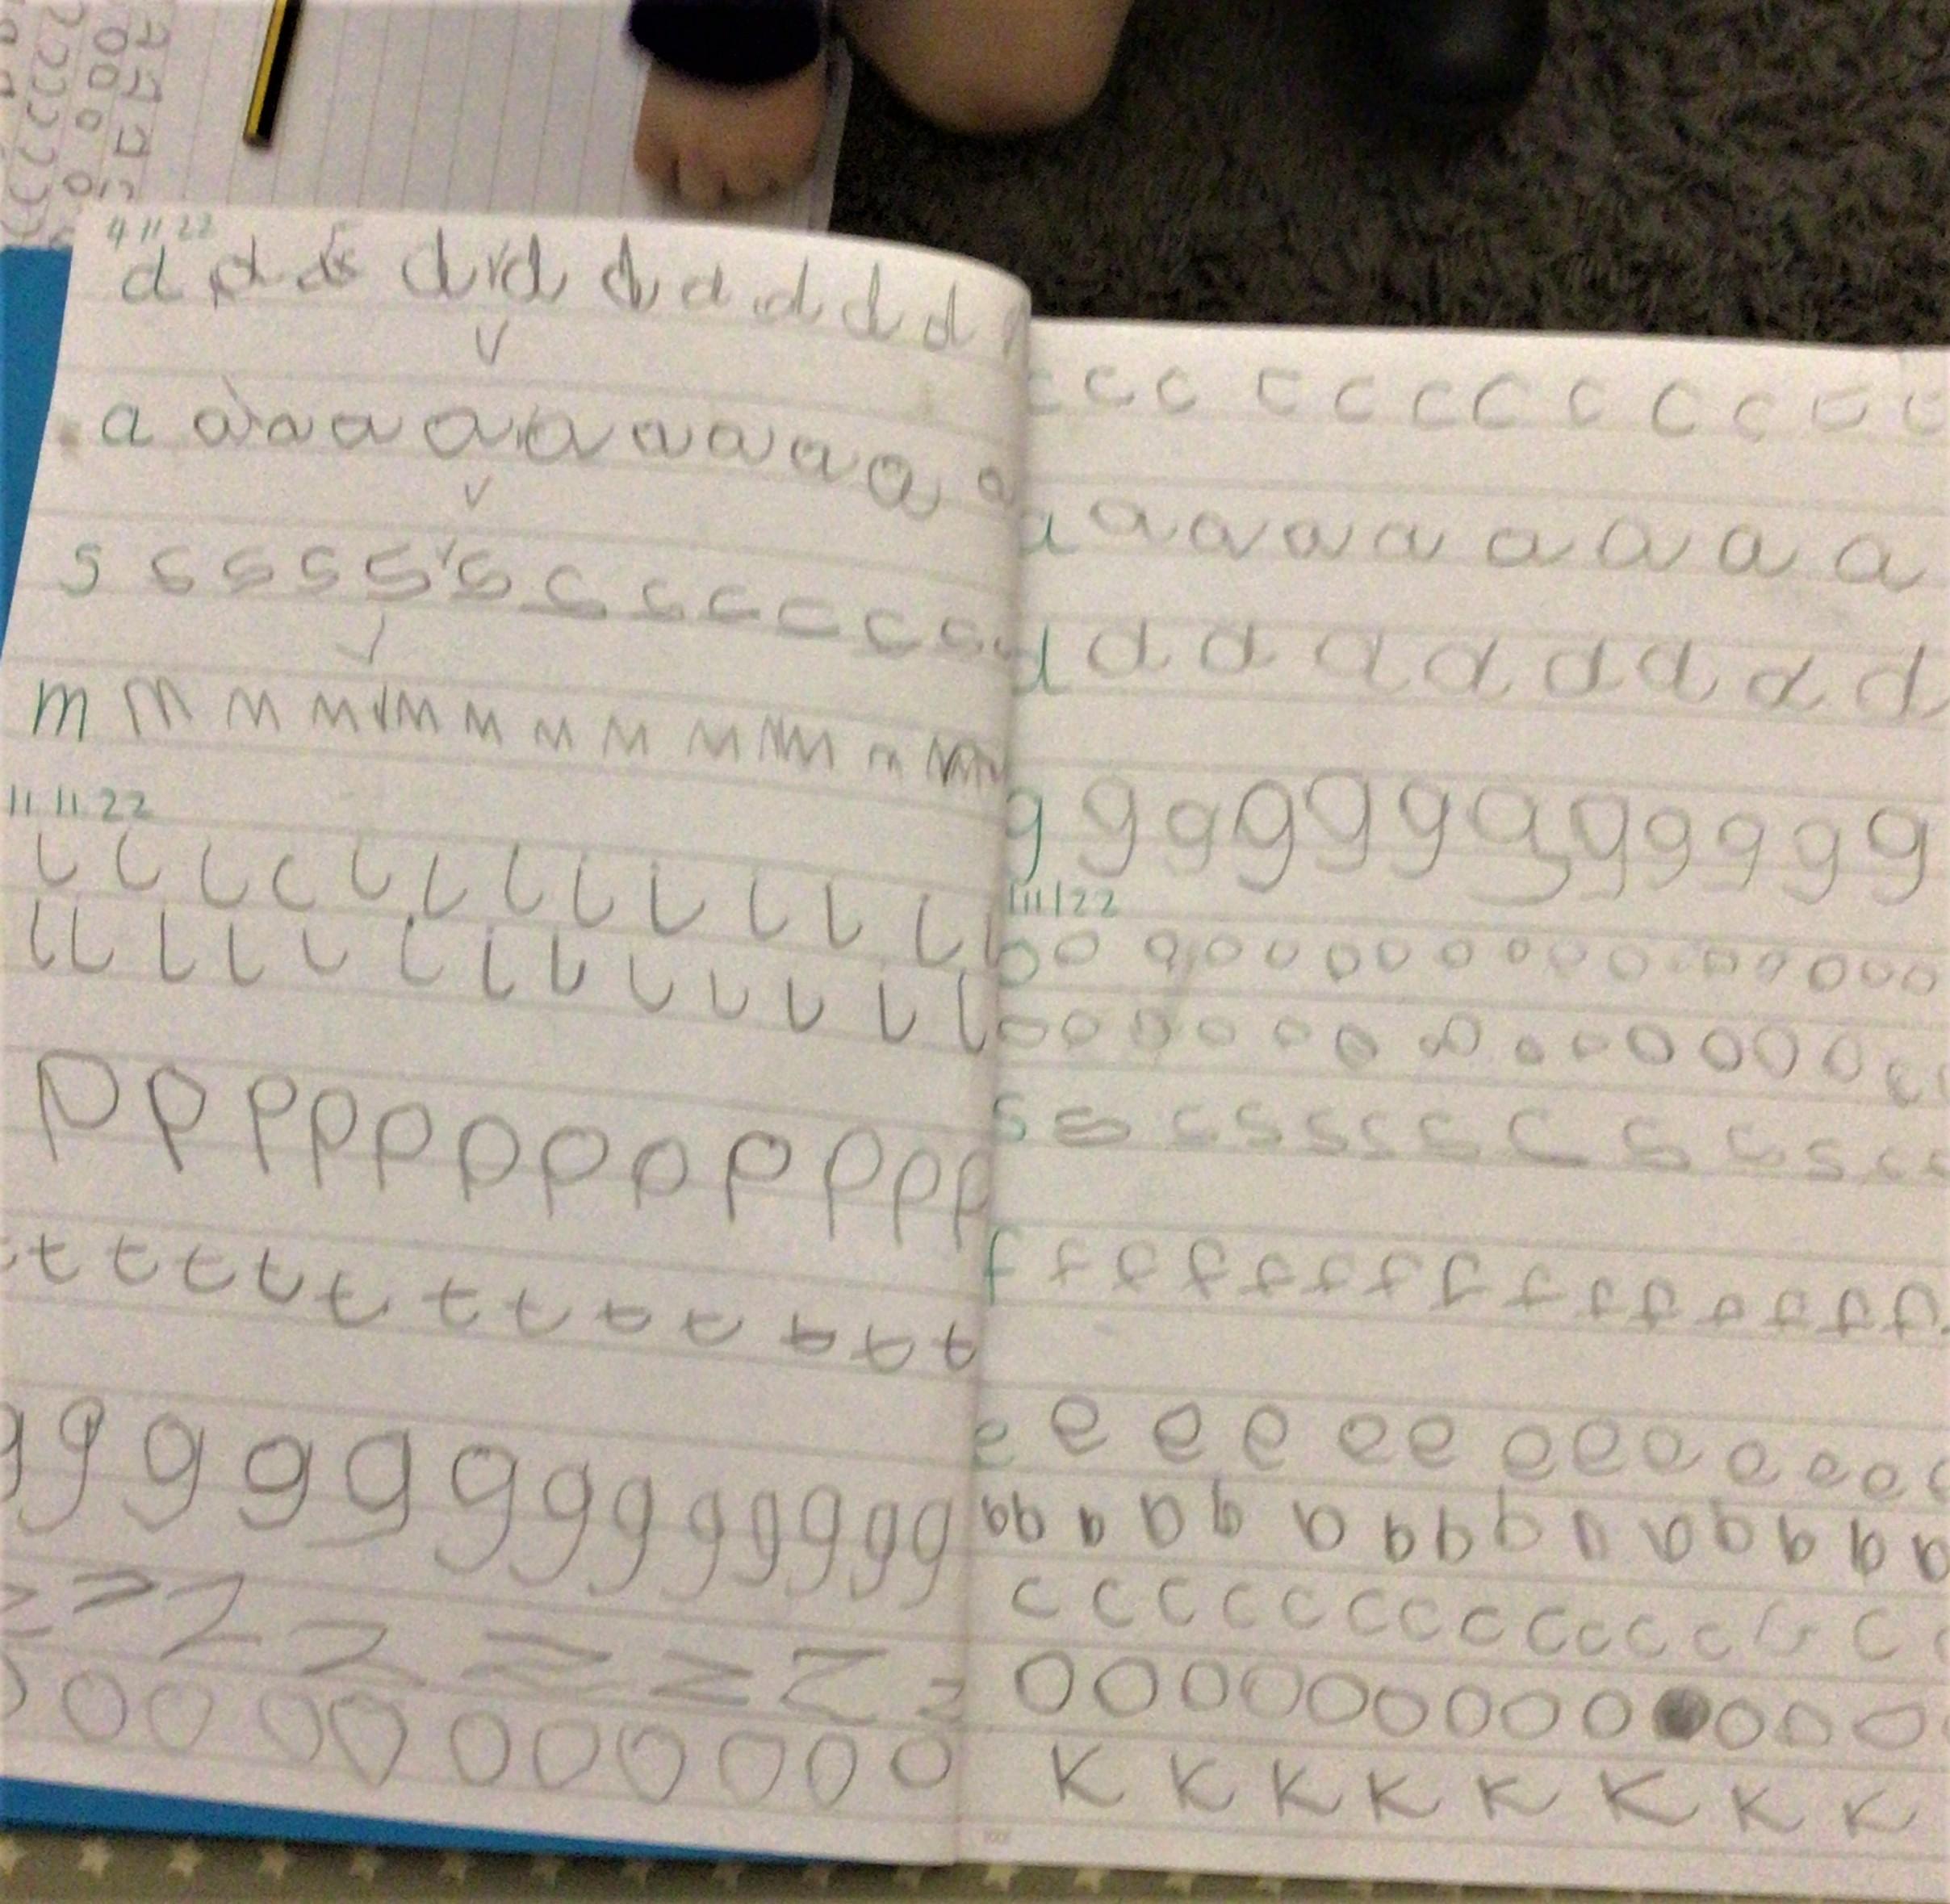 4 11 22
d d d d d d d d d d
a a a a a a a a a a a
s s s s s s s s s s s s
m m m m m m m m m m m m
11.11.22
l l l l l l l l l l l l
l l l l l l l l l l l l l
p p p p p p p p p p p p
t t t t t t t t t t t t
g g g g g g g g g g g g g
z z z z z z z z
o o o o o o o o o o
c c c c c c c c c c c c
a a a a a a a a a
d d d d d d d d d
g g g g g g g g g g g g
11/11/22
o o o o o o o o o o o o o o o o o
o o o o o o o o o o o o o
s s s s s s s s s s s s s
f f f f f f f f f f f f f f f
e e e e e e e e e e e e e
b b b b b b b b b b b b b b b b
c c c c c c c c c c c c c c
o o o o o o o o o o o o o
k k k k k k k k